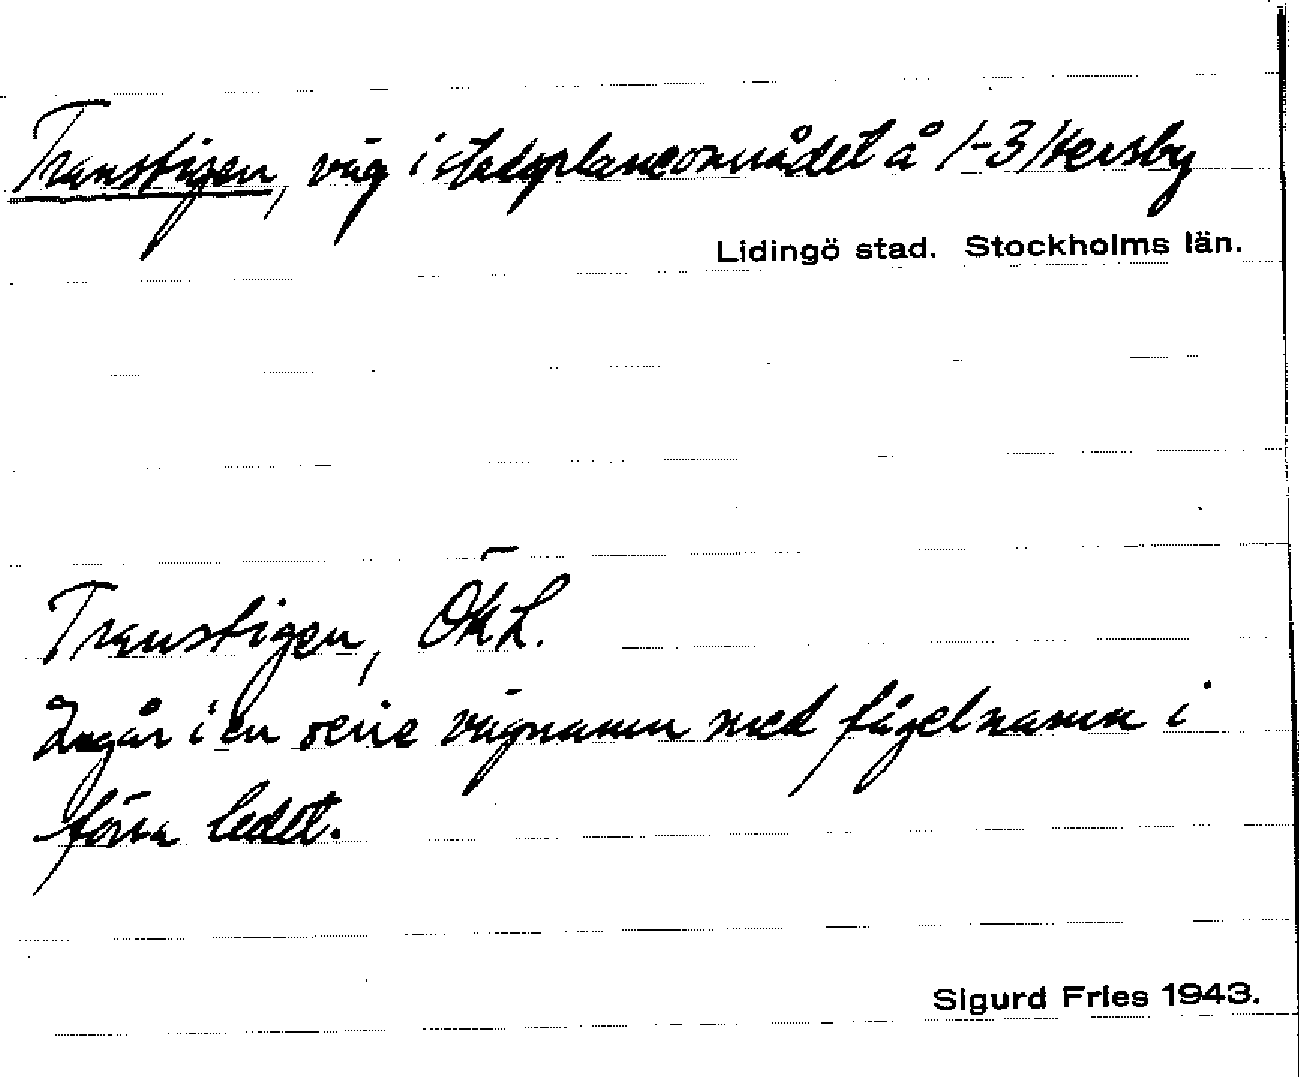 Transtigen, väg i stadsplaneområdet å 1-3 Kersby
Lidingö stad. Stockholms län.
Transtigen, ÖkL.
Ingår i en serie vägnamn med fågelnamn i
förra ledet.
Sigurd Fries 1943.